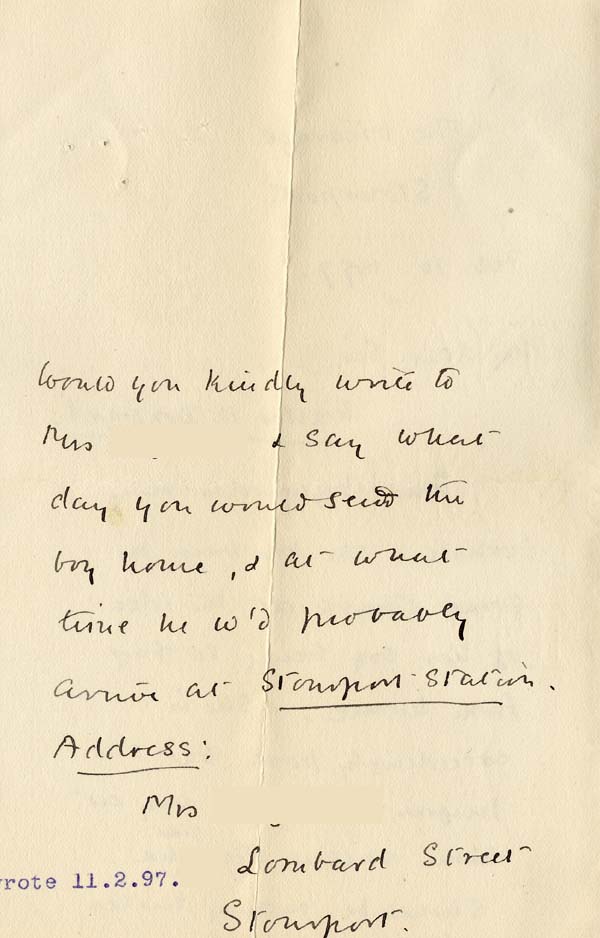 Would you kindly write to
Mrs & say what
day you would send the
boy home, & at what
time he w'd probably
arrive at Stourport Station.
Address:
Mrs
Lombard Street
wrote 11.2.97.
Stourport.